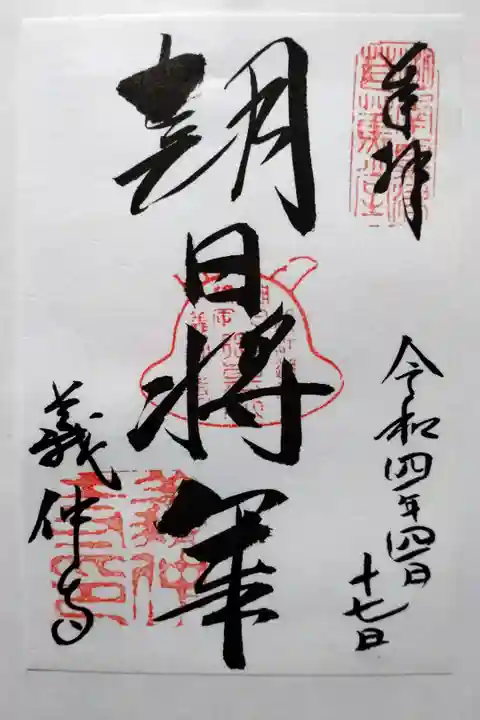 奉拝
令和四年四月
十七日
朝日将軍
義仲寺